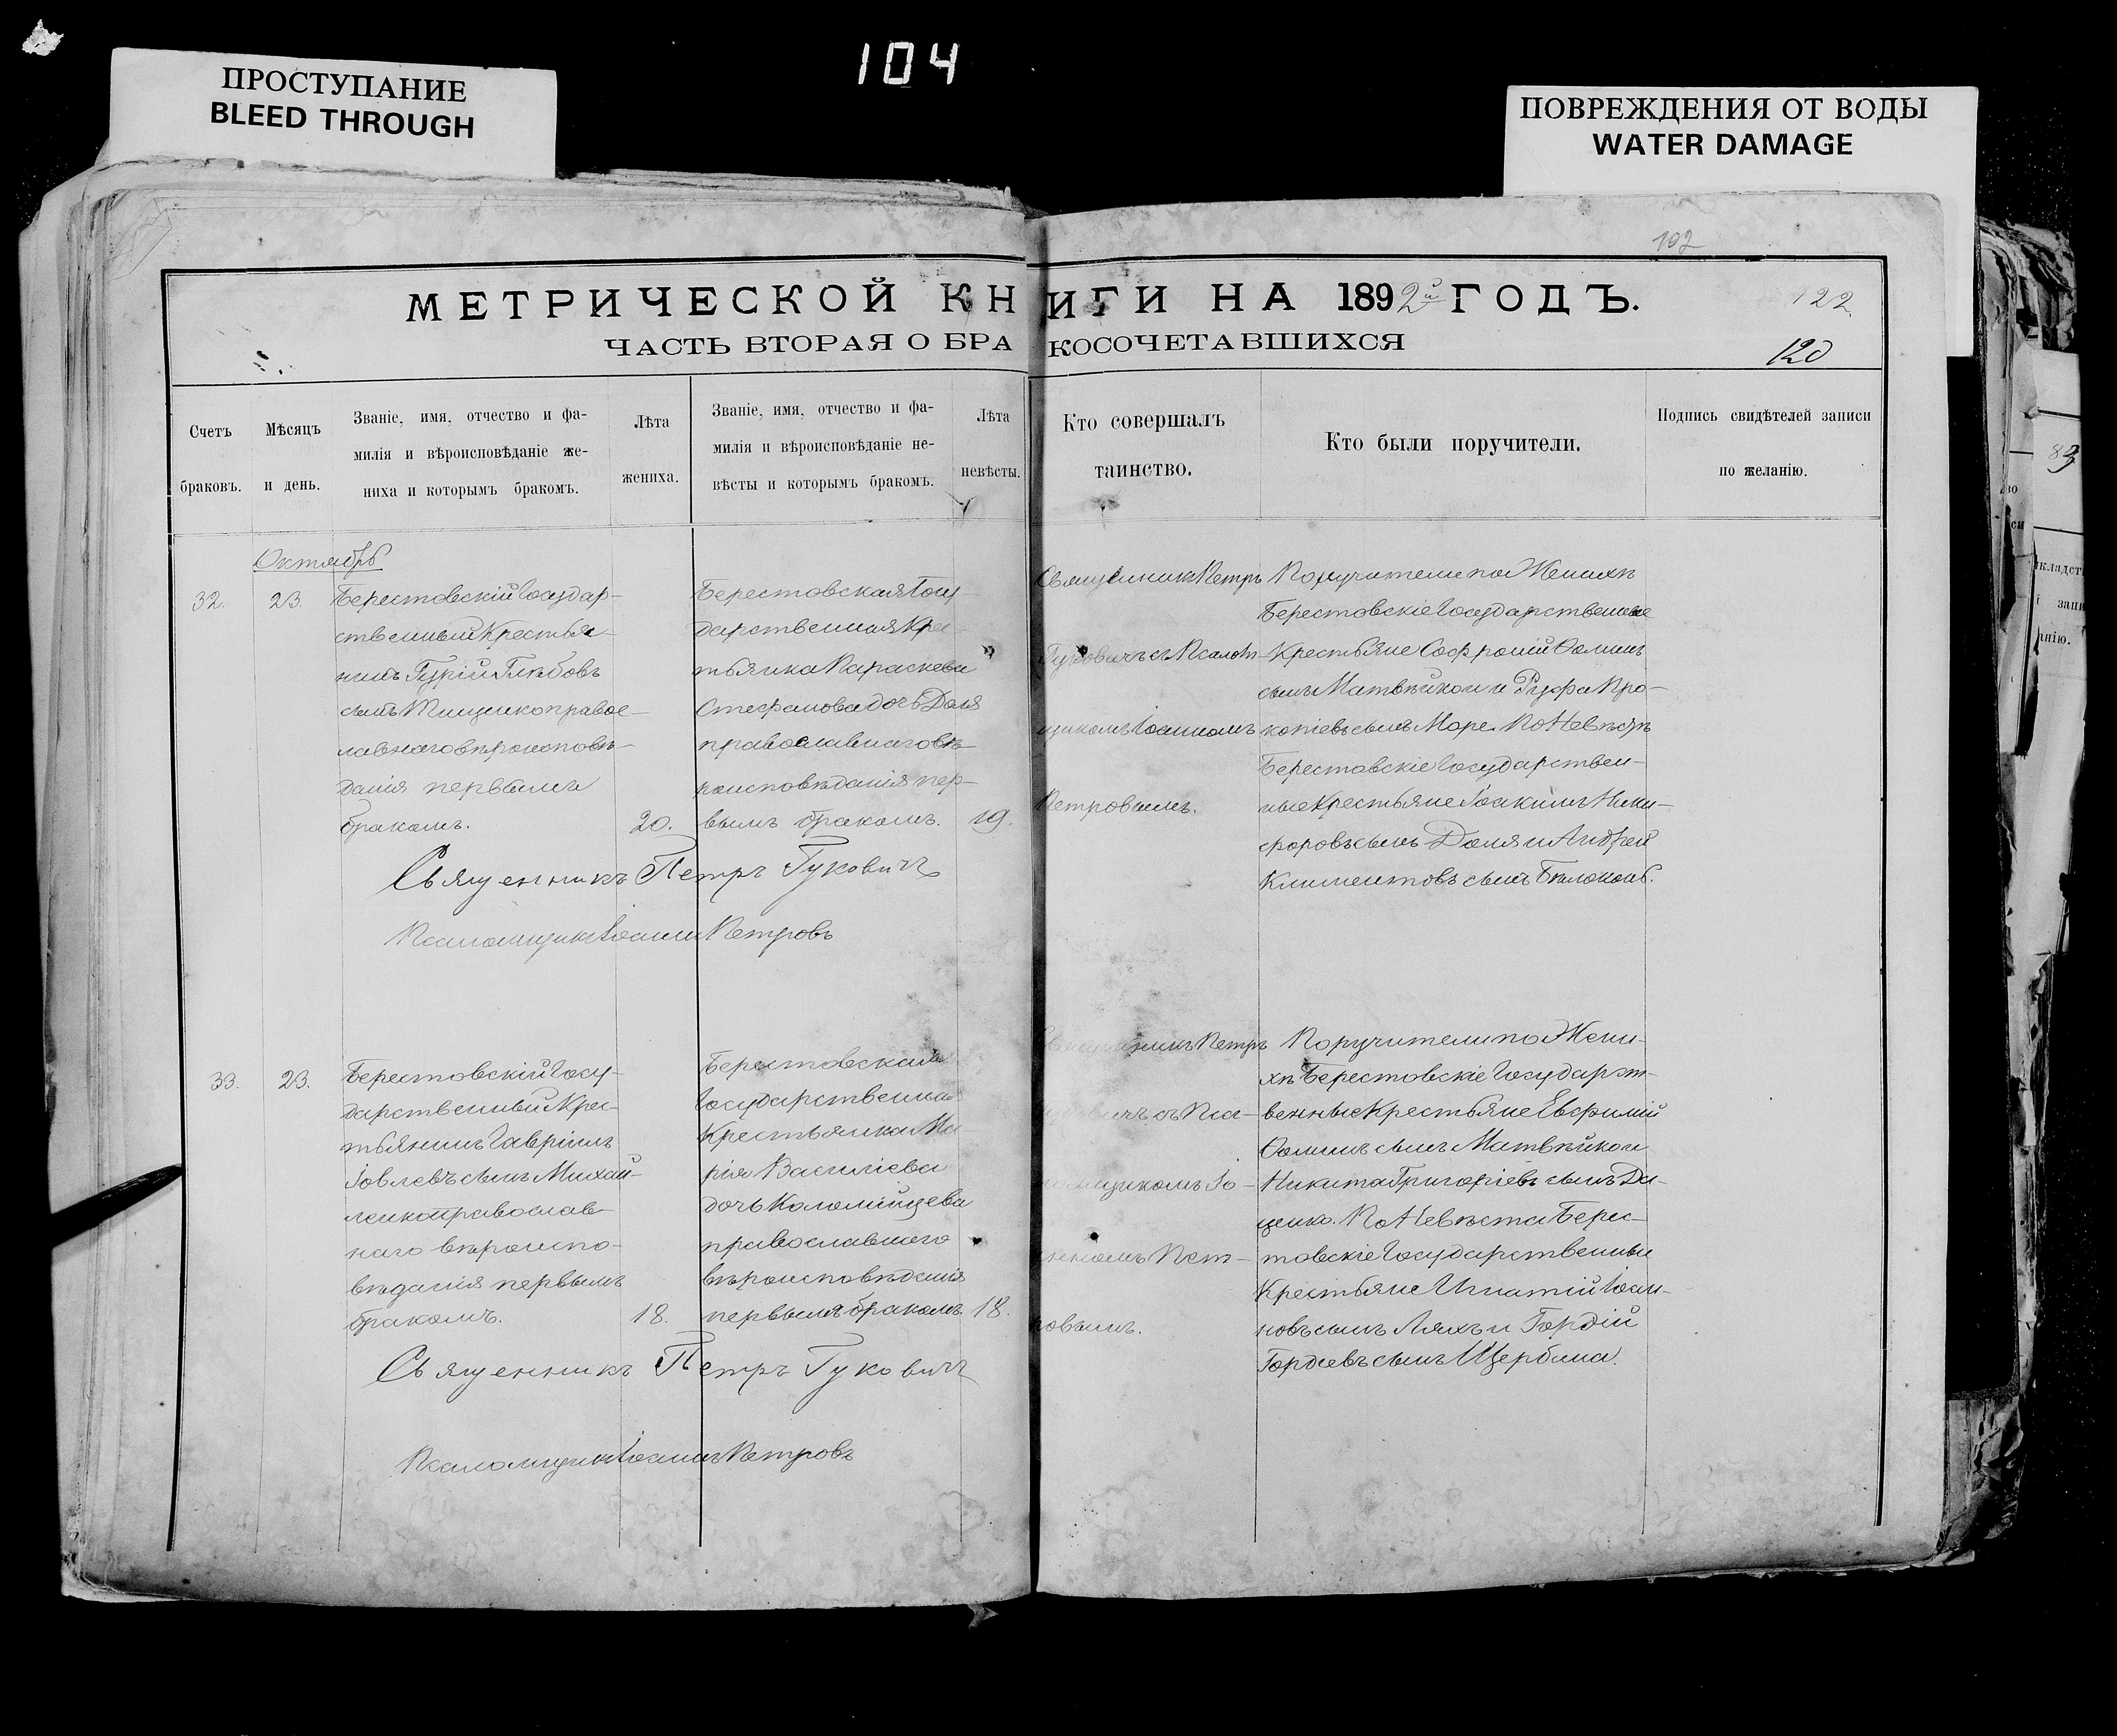 104
ПРОСТУПАНИЕ
BLEED THROUGH
ПОВРЕЖДЕНИЯ ОТ ВОДЫ
WATER DAMAGE
102
МЕТРИЧЕСКОЙ КНИГИ НА 1892й ГОДЪ.
122
ЧАСТЬ ВТОРАЯ О БРАКОСОЧЕТАВШИХСЯ
120
Счетъ браковъ.
Мѣсяцъ и день.
Званіе, имя, отчество и фа-
милія и вѣроисповѣданіе же-
ниха и которымъ бракомъ.
Лѣта жениха.
Званіе, имя, отчество и фа-
милія и вѣроисповѣданіе не-
вѣсты и которымъ бракомъ.
Лѣта невѣсты.
Кто совершалъ
таинство.
Кто были поручители.
Подпись свидѣтелей записи
по желанію.
Октябрь
32.
23.
Берестовскій Государ-
ственный Крестья-
нинъ Гурій Глѣбовъ
сынъ Тищенко правос-
лавнаго вѣроисповѣ-
данія первымъ
бракомъ.
20.
Берестовская Госу-
дарственная Крес-
тьянка Параскева
Стефанова дочь Доля
православнаго вѣ-
роисповѣданія пер-
вымъ бракомъ.
19.
Священникъ Петръ
Гуковичъ съ Псалом-
щикомъ Іоанномъ
Петровымъ.
Поручители по Женихѣ
Берестовскіе Государственные
Крестьяне Софроній Ѳоминъ
сынъ Матвѣйко и Руфъ Про-
копіевъ сынъ Море. По Невѣстѣ
Берестовскіе Государствен-
ные Крестьяне Іоакимъ Ники-
форовъ сынъ Доля и Андрей
Климентовъ сынъ Бѣлоконь.
Священникъ Петръ Гуковичъ
Псаломщикъ Іоаннъ Петровъ
33.
23.
Берестовскій Госу-
дарственный Крес-
тьянинъ Гавріилъ
Іовлевъ сынъ Михай-
ленко православ-
наго вѣроиспо-
вѣданія первымъ
бракомъ.
18.
Берестовская
Государственная
Крестьянка Ма-
рія Василіева
дочь Коломійцева
православнаго
вѣроисповѣданія
первымъ бракомъ.
18.
Священникъ Петръ
съ Пса-
ломщикомъ Іо-
анномъ Пет-
ровымъ.
Поручители по Жени-
хѣ Берестовскіе Государст-
венные Крестьяне Евфимій
Ѳоминъ сынъ Матвѣйко и
Никита Григоріевъ сынъ Да-
ценко. По Невѣста Берес-
товскіе Государственные
Крестьяне Игнатій Іоан-
новъ сынъ Ляхъ и Гордій
Гордѣевъ сынъ Щербина.
Священникъ Петръ Гуковичъ
Псаломщикъ Іоаннъ Петровъ